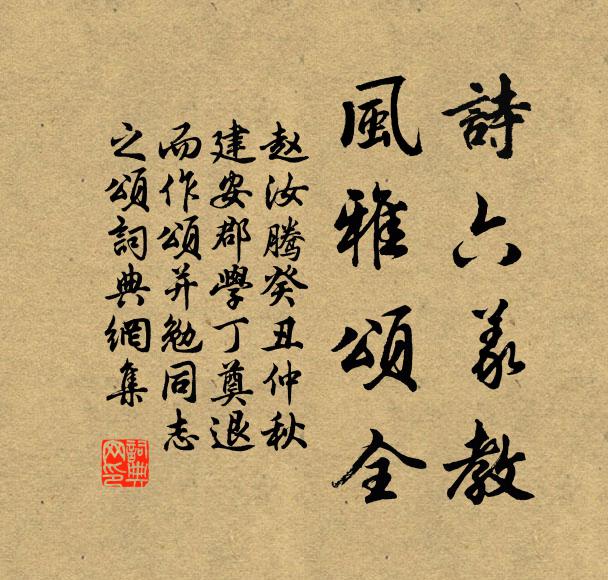 詩六義教
風雅頌全
赵汝騰癸丑仲秋
建安郡學丁奠退
而作頌并勉同志
之頌詞典網集
詞典
网印